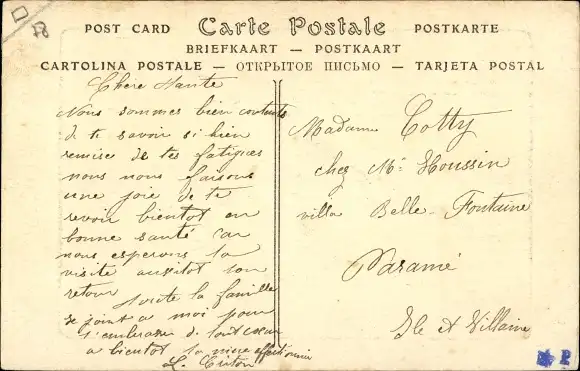 POST CARD Carte Postale POSTKARTE
BRIEFKAART — POSTKAART
CARTOLINA POSTALE — ОТКРЫТОЕ ПИСЬМО — TARJETA POSTAL
Chère Tante
Nous sommes bien contents
de te savoir si bien
remise de tes fatigues
nous nous faisons
une joie de te
revoir bientot en
bonne santé car
nous esperons ta
visite aussitot ton
retour
toute la famille
se joint a moi pour
t'embrasser de tout coeur
a bientot ta niece affectionnée
L.
Madame Cotty
chez Mr Houssin
villa Belle-Fontaine
Paramé
Ile et Villaine